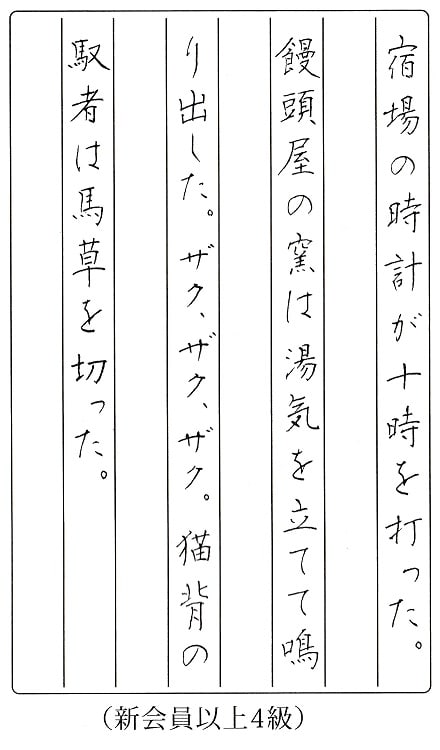 宿場の時計が十時を打った。
饅頭屋の窯は湯気を立てて鳴
り出した。ザク、ザク、ザク。猫背の
馭者は馬草を切った。
（新会員以上4級）